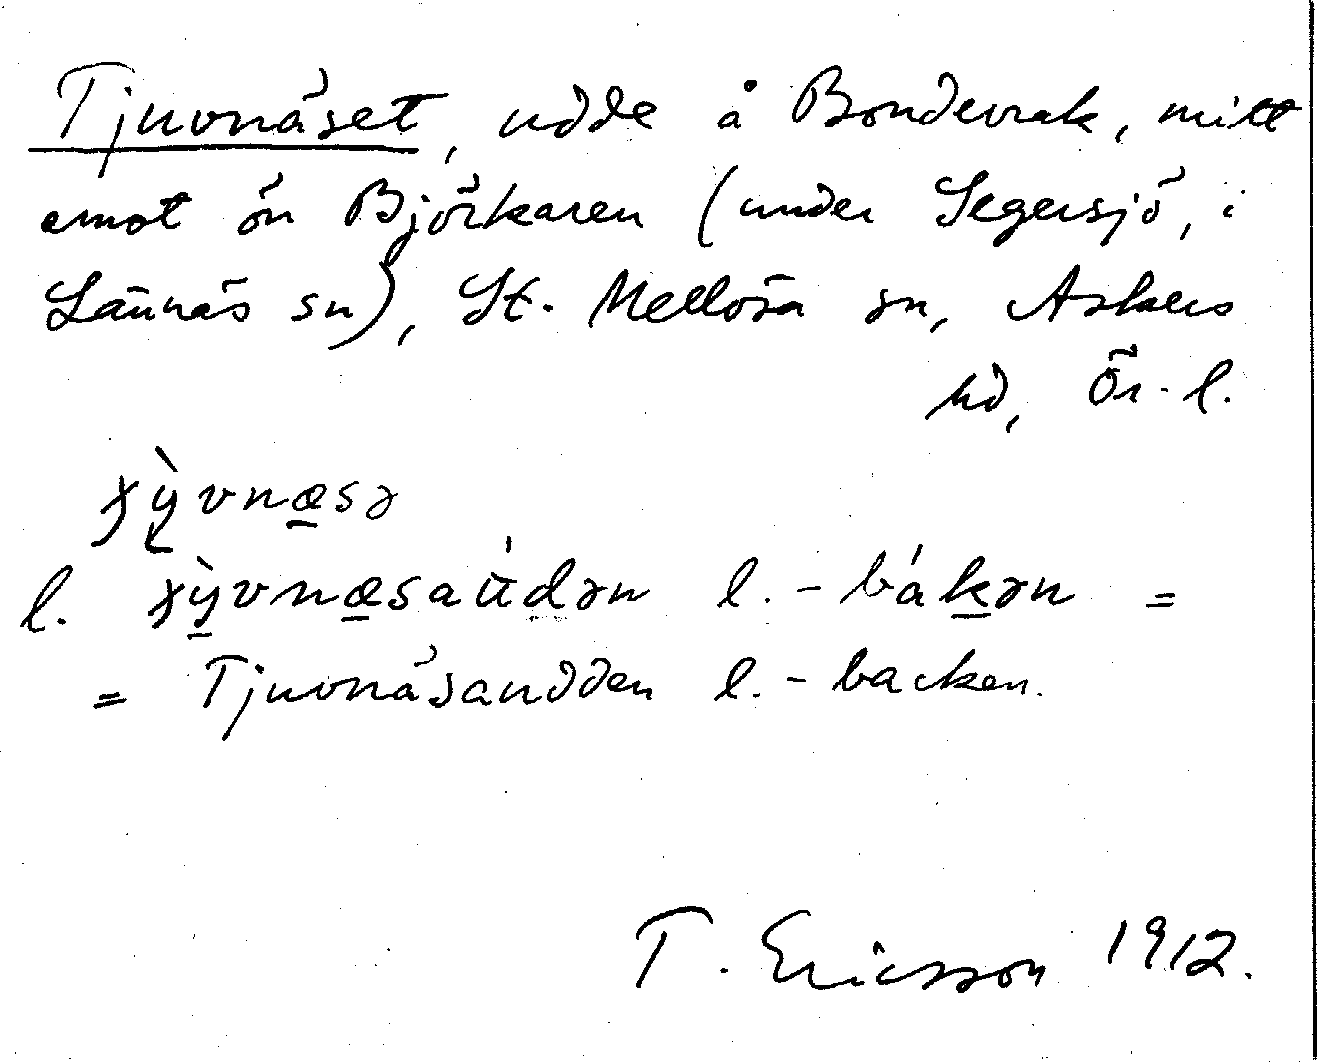 Tjuvnäset, udde å Bondevrak, mitt
emot ön Björkaren (under Segersjö, i
Lännäs sn), St. Mellösa sn, Askers
hd, Ör. l.
l. l. - =
= Tjuvnäsaudden l. - backen.
T. Ericsson 1912.